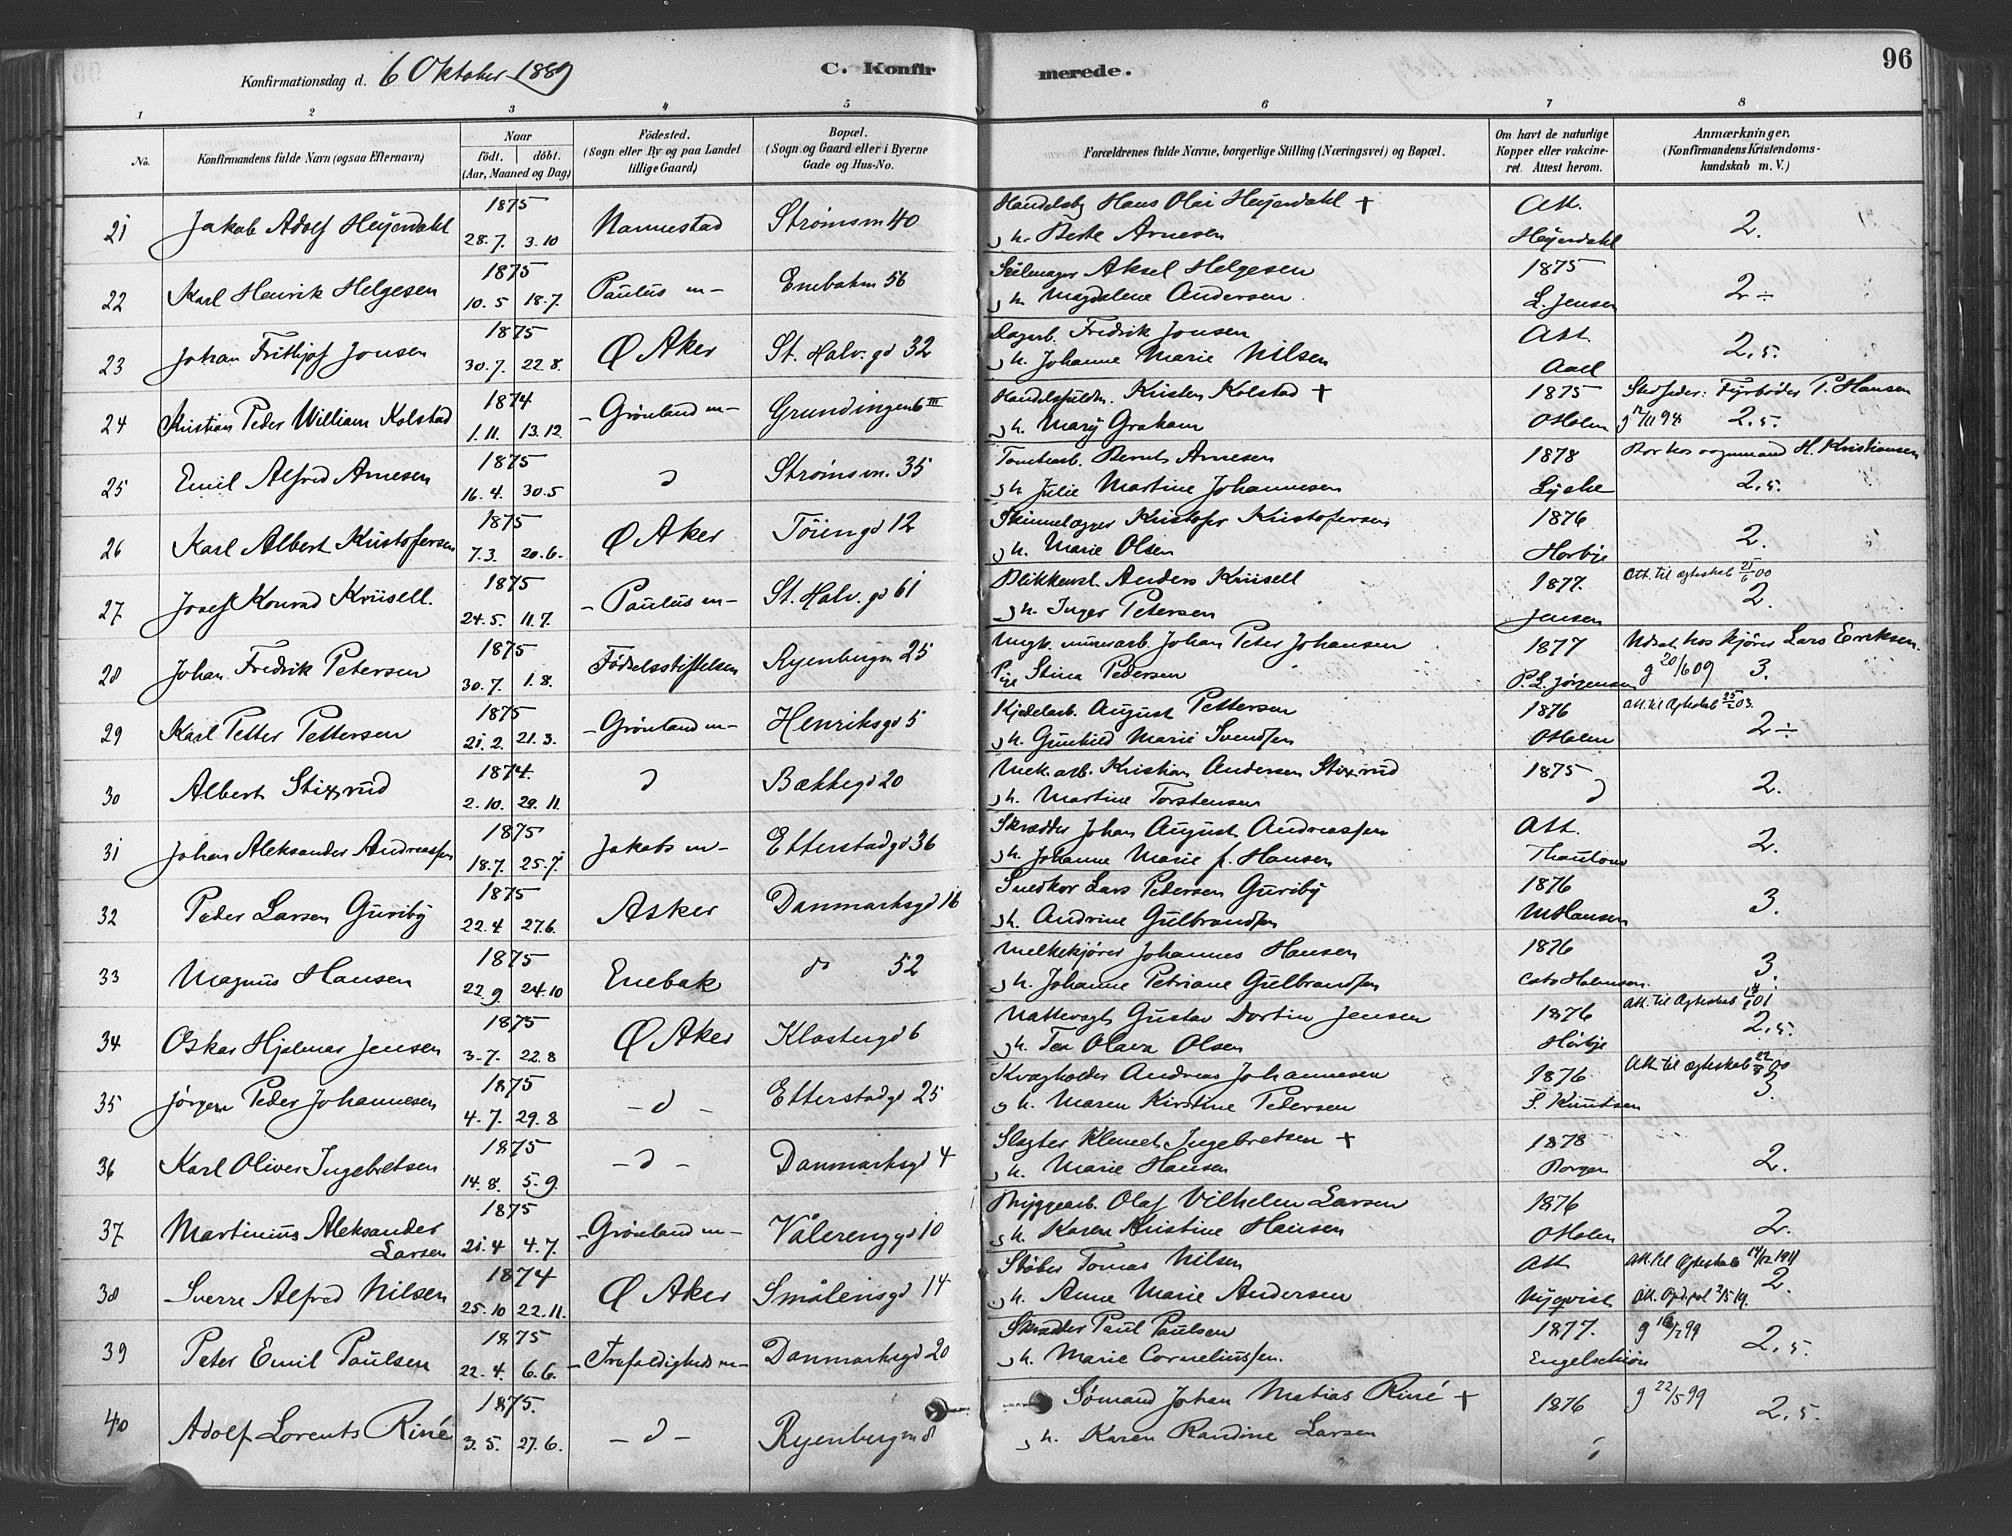 96
Konfirmationsdag d. 6 Oktober 1889
C. Konfirmerede.
1 2 3 4 5 6 7 8
No.
Konfirmandens fulde Navn (ogsaa Efternavn)
Naar
födt. döbt.
(Aar, Maaned og Dag)
Födested.
(Sogn eller By og paa Landet tillige Gaard)
Bopæl.
(Sogn og Gaard eller i Byerne Gade og Hus-No.
Forældrenes fulde Navne, borgerlige Stilling (Næringsvei) og Bopæl.
Om havt de naturlige Kopper eller vaccineret. Attest herom.
Anmærkninger,
(Konfirmandens Kristendomskundskab m. V.)
21 Jakob Adolf Heyerdahl 1875 28.7. 3.10 Nannestad Strømsvn 40 Hans Olai Heyerdahl + Att.
h. Berte Arnesen Heyerdahl 2.
22 Karl Henrik Helgesen 1875 10.5 18.7. Paulus m– Enebakvn 56 Seilmager Aksel Helgesen 1875
h. Magdalene Andersen L. Jensen 2 ÷
23 Johan Frithjof Jonsen 1875 30.7. 22.8. Ø Aker St. Halv. gd 32 Dagarb. Fredrik Jonsen Att.
h. Johanne Marie Nilsen Aall 2,5.
24 Kristian Peder William Kolstad 1874 1.11. 13.12. – Grønland m– Grundingen 6 III Kristen Kolstad + 1875 Stedfeder: Fyrbøder P. Hansen
h. Mary Graham O Holm g 12/11 98 2,5.
25 Emil Alfred Arnesen 1875 16.4. 30.5 d Strømsvn. 35 Tomtearb. Bernt Arnesen 1878 Bor hos vognmand H. Kristiansen
h. Julie Martine Johannesen Lyche 2,5.
26 Karl Albert Kristofersen 1875 7.3. 20.6. Ø Aker Töiengd 12 Kristofer Kristofersen 1876
h. Marie Olsen Horbje 2.
27 Josef Konrad Krüsell. 1875 24.5. 11.7. – Paulus m– St. Halv. gd 61 Blikkensl. Anders Krüsell 1877. Att. til ægteskab 21/6 00
h. Inger Petersen Jensen 2.
28 Johan Fredrik Petersen 1875 30.7. 1.8. Födselsstiftelsen Ryenbergvn 25 Ungk. murerarb. Johan Peter Johansen 1877 Udsat hos kjører Lars Eriksen.
Pige Stina Pedersen P. L. Jørgensen g 20/6 09 3.
29 Karl Petter Pettersen 1875 21.2. 21.3. – Grønland m– Henriksgd 5 Kjedelarb. August Pettersen 1876 Att. til Ægteskab 25/2 03.
h. Gunhild Marie Svendsen O Holm 2 ÷
30 Albert Stixrud 1874. 2.10. 29.11. d Bækkegd 20 Mek. arb. Kristian Andersen Stixrud 1875
h. Martine Torstensen d 2.
31 Johan Aleksander Andreassen 1875 18.7. 25.7. Jakobs m– Etterstadgd 36 Skrædder Johan August Andreassen Att.
h. Johanne Marie f. Hansen Thaulow 2.
32 Peder Larsen Guriby 1875 22.4 27.6. Asker Danmarksgd 16 Snedker Lars Pedersen Guriby 1876
h. Andrine Gulbrandsen M Hansen 3.
33 Magnus Hansen 1875 22.9. 24.10 Enebak do 52 Melkekjører Johannes Hansen 1876
h. Johanne Petriane Gulbrandsen 3.
34 Oskar Hjalmar Jensen 1875 3.7. 22.8 Ø Aker Klostergd 6 Nattevagt Gustav Jensen 1876 Att. til Ægteskab 01
h. Tea Olava Olsen Hörbje 2,5.
35 Jørgen Peder Johannesen 1875 4.7. 29.8 – d – Etterstadgd 25 Kvægholder Andreas Johannesen 1876 Att. til ægteskab 22/8 00
h. Maren Kirstine Pedersen S. Knutsen 3.
36 Karl Oliver Ingebretsen 1875 14.8. 5.9. – d – Danmarksgd 4 Slagter Klemet Ingebretsen + 1878
h. Marie Hansen Borgen 2.
37 Martinius Aleksander Larsen 1875 21.4 4.7. – Grønland m– Vålerenggd 10 Bryggearb. Olaf Vilhelm Larsen 1876
h. Karen Kristine Hansen O Holm 2.
38 Sverre Alfred Nilsen 1874 25.10 22.11. Ø Aker Smålensgd 14 Støber Tomas Nilsen Att Att. til Ægteskab 14/12 1911
h. Anne Marie Andersen Nyqvist 2.
39 Peter Emil Paulsen 1875 22.4. 6.6. – Trefoldigheds m– Danmarksgd 20 Skrædder Paul Paulsen 1877.
h. Marie Corneliussen. Engelschiøn 2,5.
40 Adolf Lorents Riné 1875. 3.5. 27.6. – d – Ryenbergvn 8 Sømand Johan Matias Riné + 1876 g 22/5 99
h. Karen Randine Larsen 2,5.